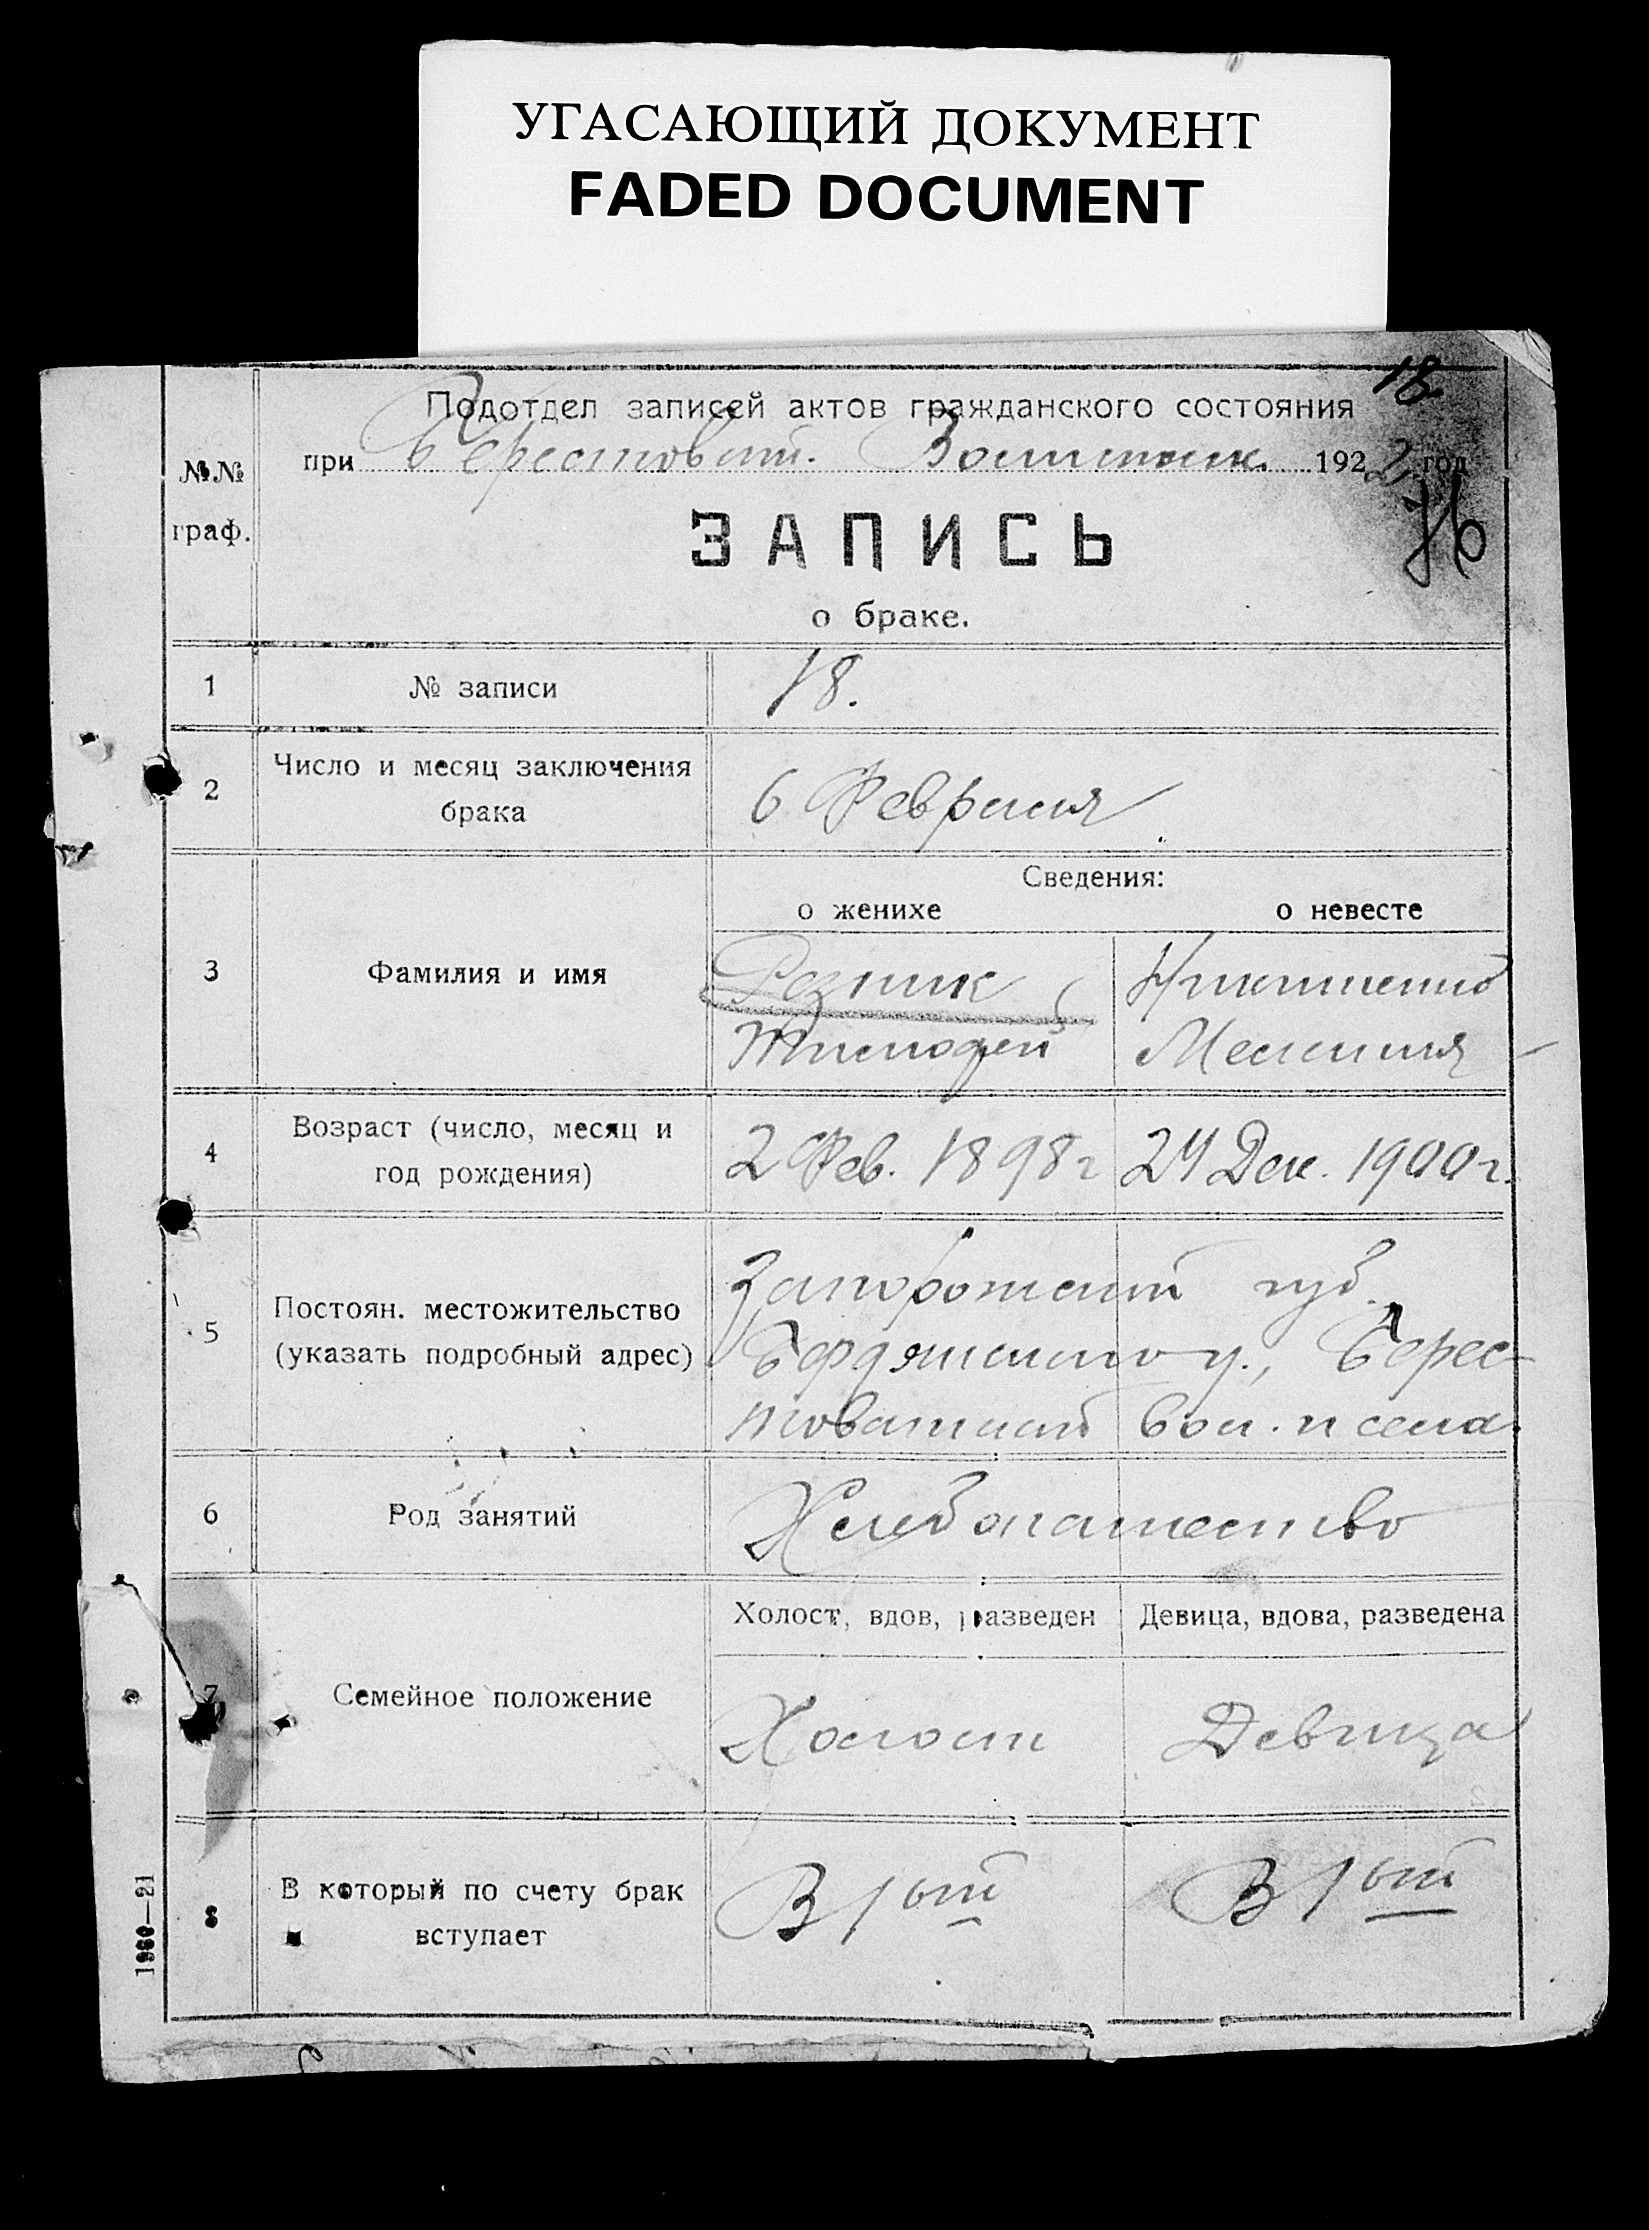 УГАСАЮЩИЙ ДОКУМЕНТ
FADED DOCUMENT
18
Подотдел записей актов гражданского состояния
при Берестов. Волиспол. 1922 год
76
№№
граф.
ЗАПИСЬ
о браке.
1 № записи 18.
2 Число и месяц заключения
брака
6 Февраля
Сведения:
о женихе о невесте
3 Фамилия и имя
Резник
Тимофей
Никитенко
Мелания
4 Возраст (число, месяц и
год рождения)
2 Фев. 1898 г 24 Дек. 1900 г.
5 Постоян. местожительство
(указать подробный адрес)
Запорожский губ.
Бердянского у., Берес-
товатской вол. и села.
6 Род занятий Хлебопашество
Холост, вдов, разведен Девица, вдова, разведена
7 Семейное положение
Холост Девица
8 В который по счету брак
вступает
В 1ый В 1ый